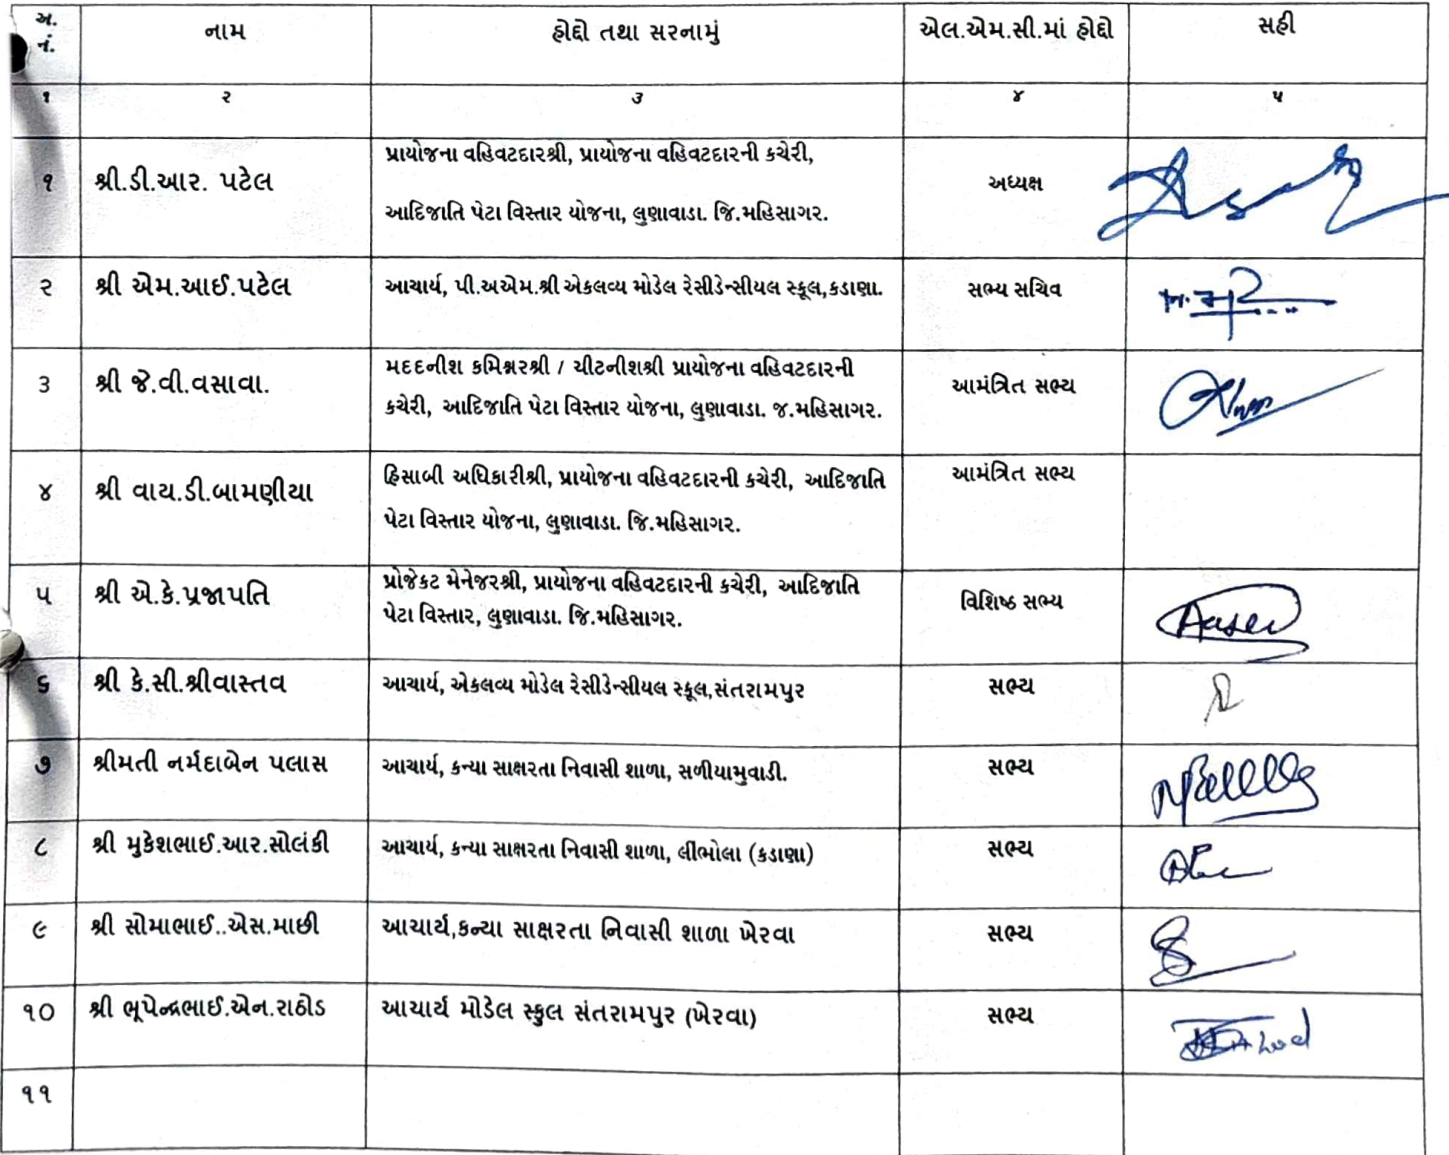 અ.
નં.
નામ
હોદ્દો તથા સરનામું
એલ.એમ.સી.માં હોદ્દો
સહી
૧
૨
૩
૪
૫
૧
શ્રી.ડી.આર. પટેલ
પ્રાયોજના વહિવટદારશ્રી, પ્રાયોજના વહિવટદારની કચેરી,
આદિજાતિ પેટા વિસ્તાર યોજના, લુણાવાડા. જિ.મહિસાગર.
અધ્યક્ષ
૨
શ્રી એમ.આઈ.પટેલ
આચાર્ય, પી.અએમ.શ્રી એકલવ્ય મોડેલ રેસીડેન્સીયલ સ્કૂલ,કડાણા.
સભ્ય સચિવ
૩
શ્રી જે.વી.વસાવા.
મદદનીશ કમિશ્નરશ્રી / ચીટનીશશ્રી પ્રાયોજના વહિવટદારની
કચેરી, આદિજાતિ પેટા વિસ્તાર યોજના, લુણાવાડા. જ.મહિસાગર.
આમંત્રિત સભ્ય
૪
શ્રી વાય.ડી.બામણીયા
હિસાબી અધિકારીશ્રી, પ્રાયોજના વહિવટદારની કચેરી, આદિજાતિ
પેટા વિસ્તાર યોજના, લુણાવાડા. જિ.મહિસાગર.
આમંત્રિત સભ્ય
૫
શ્રી એ.કે.પ્રજાપતિ
પ્રોજેકટ મેનેજરશ્રી, પ્રાયોજના વહિવટદારની કચેરી, આદિજાતિ
પેટા વિસ્તાર, લુણાવાડા. જિ.મહિસાગર.
વિશિષ્ઠ સભ્ય
૬
શ્રી કે.સી.શ્રીવાસ્તવ
આચાર્ય, એકલવ્ય મોડેલ રેસીડેન્સીયલ સ્કૂલ,સંતરામપુર
સભ્ય
૭
શ્રીમતી નર્મદાબેન પલાસ
આચાર્ય, કન્યા સાક્ષરતા નિવાસી શાળા, સળીયામુવાડી.
સભ્ય
૮
શ્રી મુકેશભાઈ.આર.સોલંકી
આચાર્ય, કન્યા સાક્ષરતા નિવાસી શાળા, લીંભોલા (કડાણા)
સભ્ય
૯
શ્રી સોમાભાઈ..એસ.માછી
આચાર્ય,કન્યા સાક્ષરતા નિવાસી શાળા ખેરવા
સભ્ય
૧૦
શ્રી ભૂપેન્દ્રભાઈ.એન.રાઠોડ
આચાર્ય મોડેલ સ્કુલ સંતરામપુર (ખેરવા)
સભ્ય
૧૧